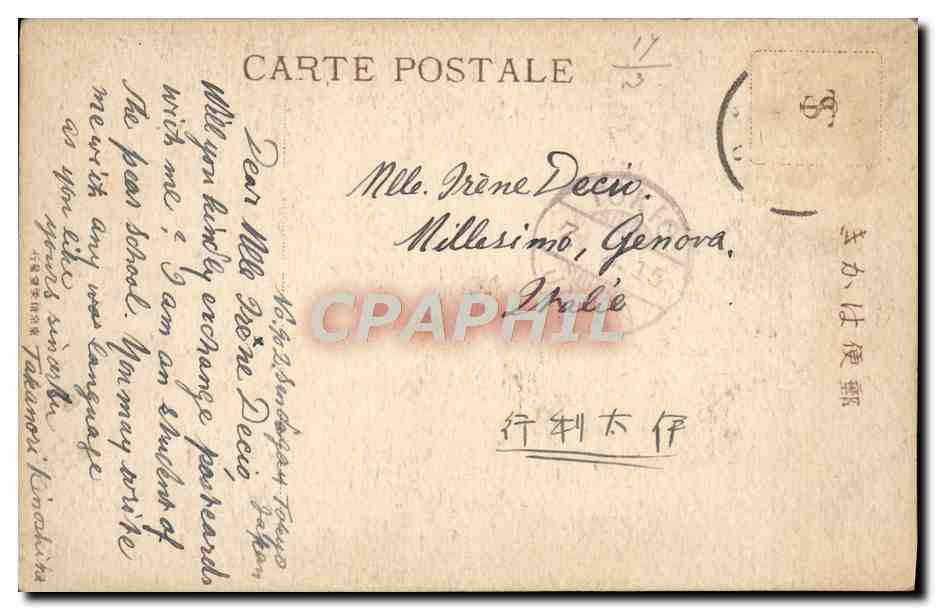 CARTE POSTALE
17/3
TS
Mlle. Irène Decio.
Millesimo, Genova.
Italie
伊太利行
きかは便郵
TOKIO
7
15
CPAPHIL
No. 902, Sendagay Tokyo
Japan
Dear Mlle Irène Decio
Will you kindly exchange postcards
with me? I am an student of
The pear school. You may write
me with any was language
as you like
yours
Takanori Kinoshita